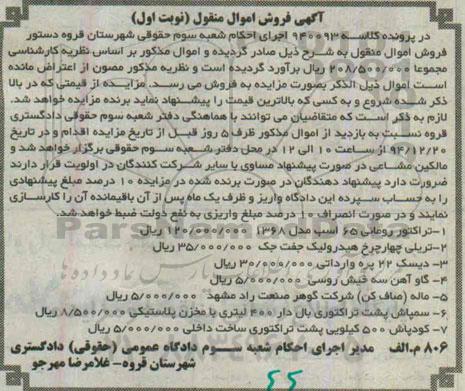 آگهی فروش اموال منقول (نوبت اول)
در پرونده کلاسه ۹۴۰۰۹۳ اجرای احکام شعبه سوم حقوقی شهرستان قروه دستور
فروش اموال منقول به شرح ذیل صادر گردیده و اموال مذکور بر اساس نظریه کارشناسی
مجموعا ۲۰۸/۵۰۰/۰۰۰ ریال برآورد گردیده است و نظریه مذکور مصون از اعتراض مانده
است اموال ذیل الذکر بصورت مزایده به فروش می رسد. مزایده از قیمتی که در بالا
ذکر شده شروع و به کسی که بالاترین قیمت را پیشنهاد نماید برنده مزایده خواهد شد.
لازم به ذکر است که متقاضیان می توانند با هماهنگی دفتر شعبه سوم حقوقی دادگستری
قروه نسبت به بازدید از اموال مذکور ظرف ۵ روز قبل از تاریخ مزایده اقدام و در تاریخ
۹۴/۱۲/۲۰ از ساعت ۱۰ الی ۱۲ در محل دفتر شعبه سوم حقوقی برگزار خواهد شد و
مالکین مشاعی در صورت پیشنهاد مساوی با سایر شرکت کنندگان در اولویت قرار دارند
ضرورت دارد پیشنهاد دهندگان در صورت برنده شده در مزایده ۱۰ درصد مبلغ پیشنهادی
را به حساب سپرده این دادگاه واریز و ظرف یک ماه پس از آن باقیمانده آن را کارسازی
نمایند و در صورت انصراف ۱۰ درصد مبلغ واریزی به نفع دولت ضبط خواهد شد.
۱-تراکتور رومانی ۶۵ اسب مدل ۱۳۶۸ ۱۲۰/۰۰۰/۰۰۰ ریال
۲-تریلی چهارچرخ هیدرولیک جفت جک ۳۵/۰۰۰/۰۰۰ ریال
۳- دیسک ۲۲ پره وارداتی ۳۰/۰۰۰/۰۰۰ ریال
۴- گاو آهن سه خیش روسی ۵/۰۰۰/۰۰۰ ریال
۵- ماله (صاف کن) شرکت گوهر صنعت راد مشهد ۵/۰۰۰/۰۰۰ ریال
۶- سمپاش پشت تراکتوری بال دار ۴۰۰ لیتری با مخزن پلاستیکی ۸/۵۰۰/۰۰۰ ریال
۷- کودپاش ۵۰۰ کیلویی پشت تراکتوری ساخت داخلی ۵/۰۰۰/۰۰۰ ریال
۸۰۶ م.الف مدیر اجرای احکام شعبه سوم دادگاه عمومی (حقوقی) دادگستری
شهرستان قروه- غلامرضا مهرجو